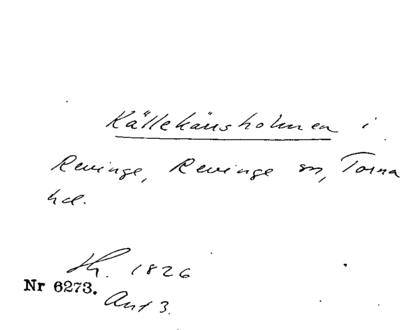 Källekärsholmen i
Revinge, Revinge sn, Torna
hd.
Th. 1826
Nr 6273. Ant 3.